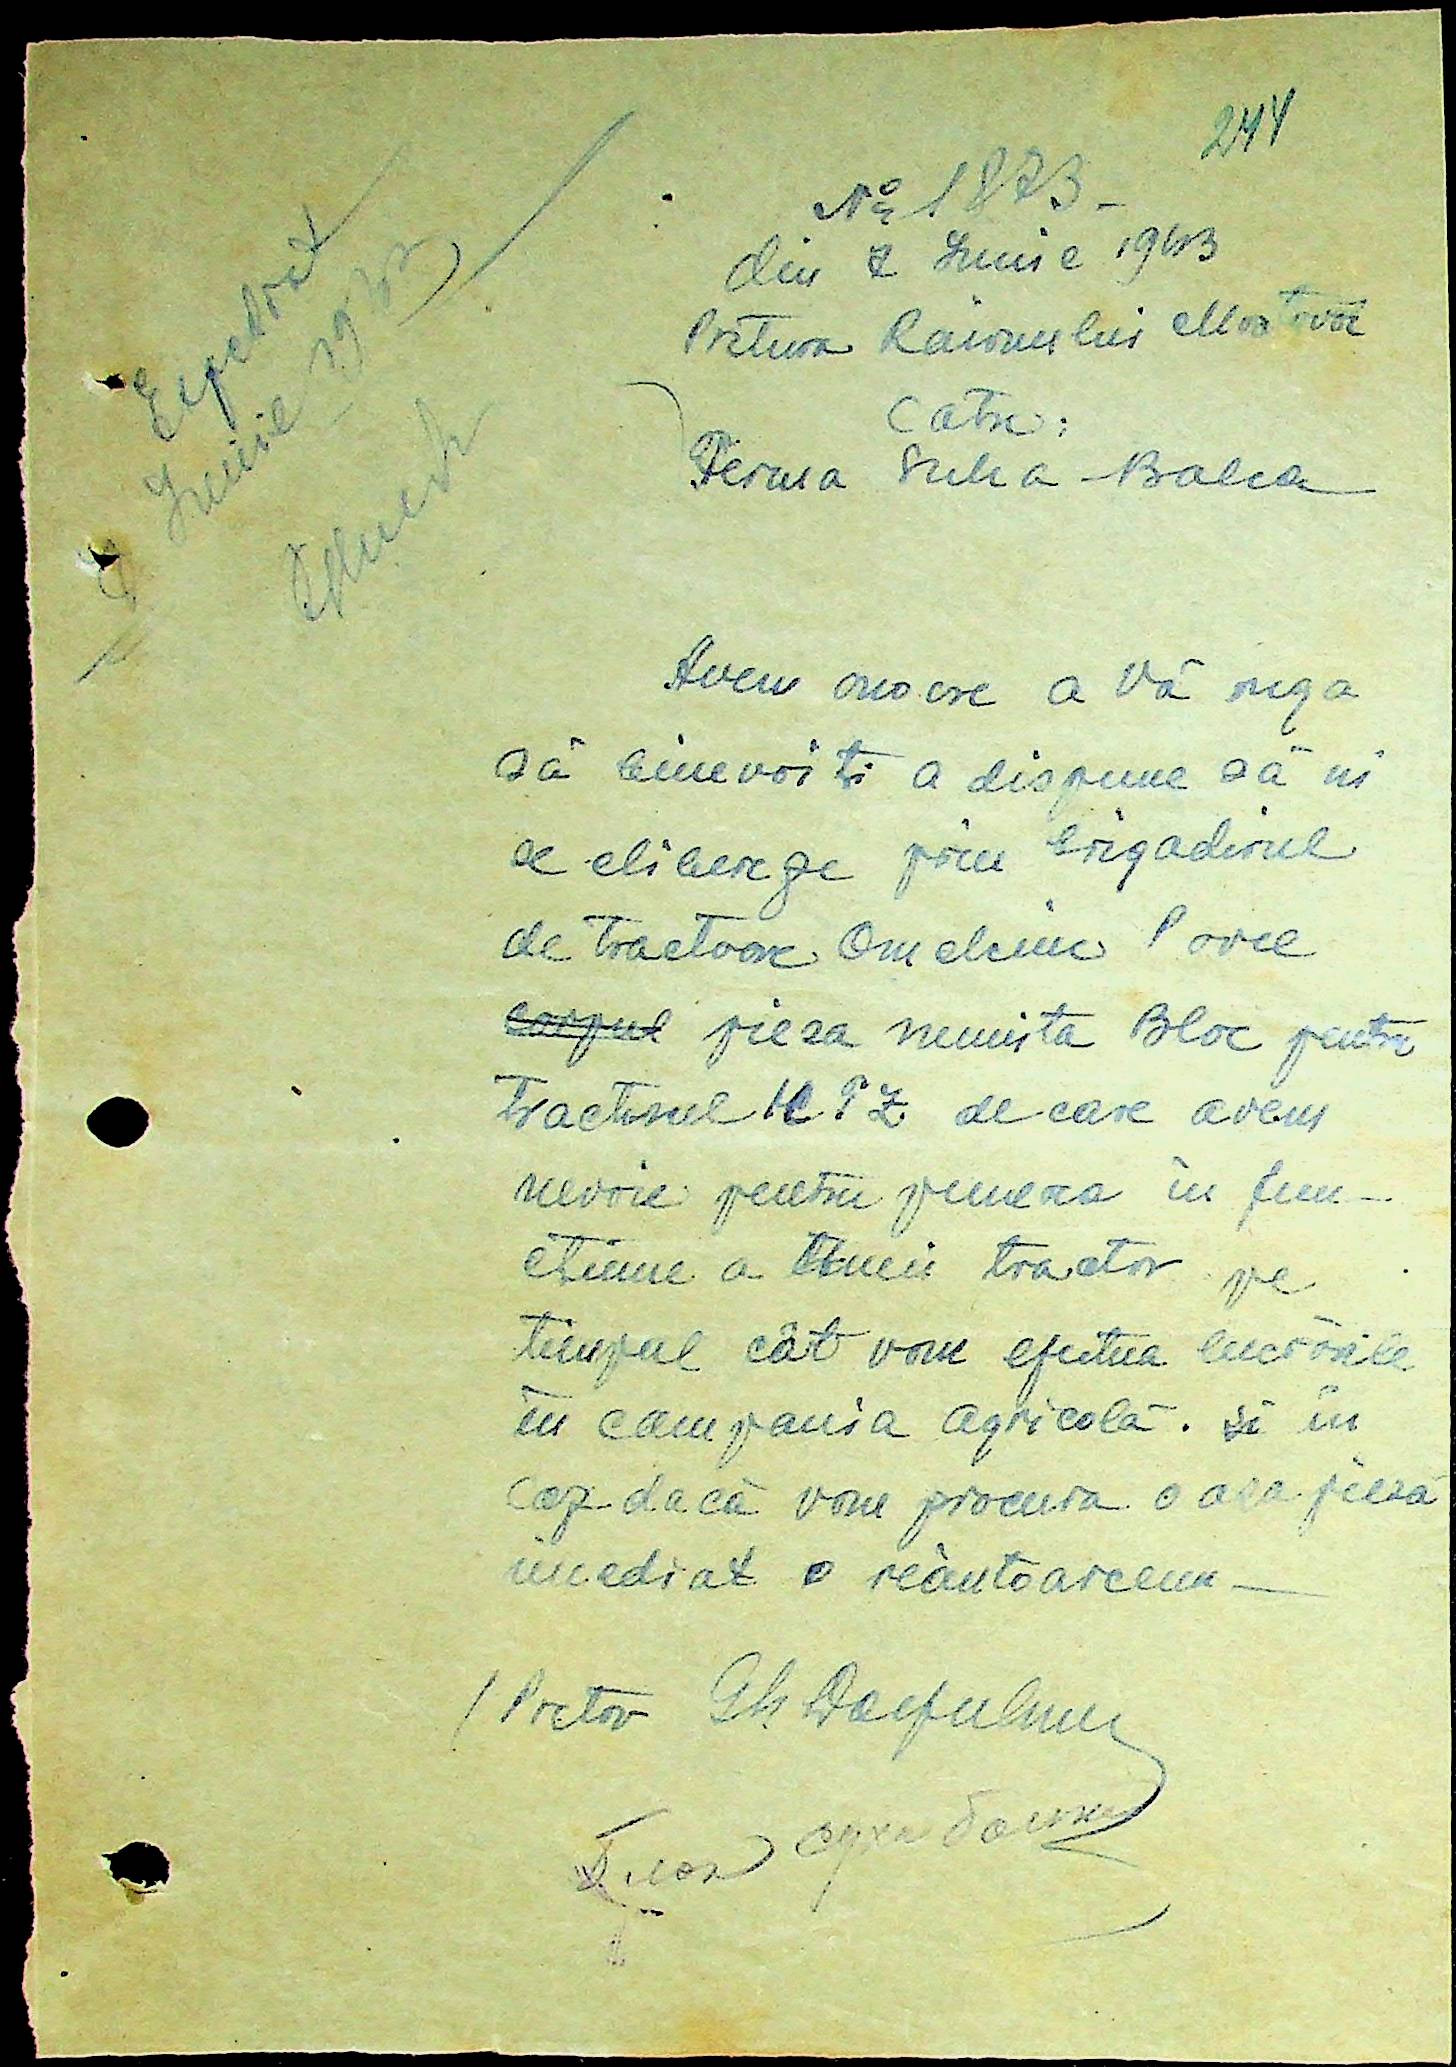 244
№ 1873-
din 7 Iunie 1943
Pretura Raionului Mostovoi
Catre:
Ferma Suha Balca
Expediat
Iunie 1943
Avem onoare a Vă ruga
să binevoiți a dispune să ni
se elibereze prin brigadirul
de tractoare Omelcinc
corpul piesa numita Bloc pentru
tractorul HTZ de care avem
nevoie pentru punerea in fun-
ctiune a unui tractor pe
timpul cât vom efectua lucrările
in campania agricolă. și in
caz dacă vom procura o asa piesă
imediat o reântoarcem
/ Pretor Gh